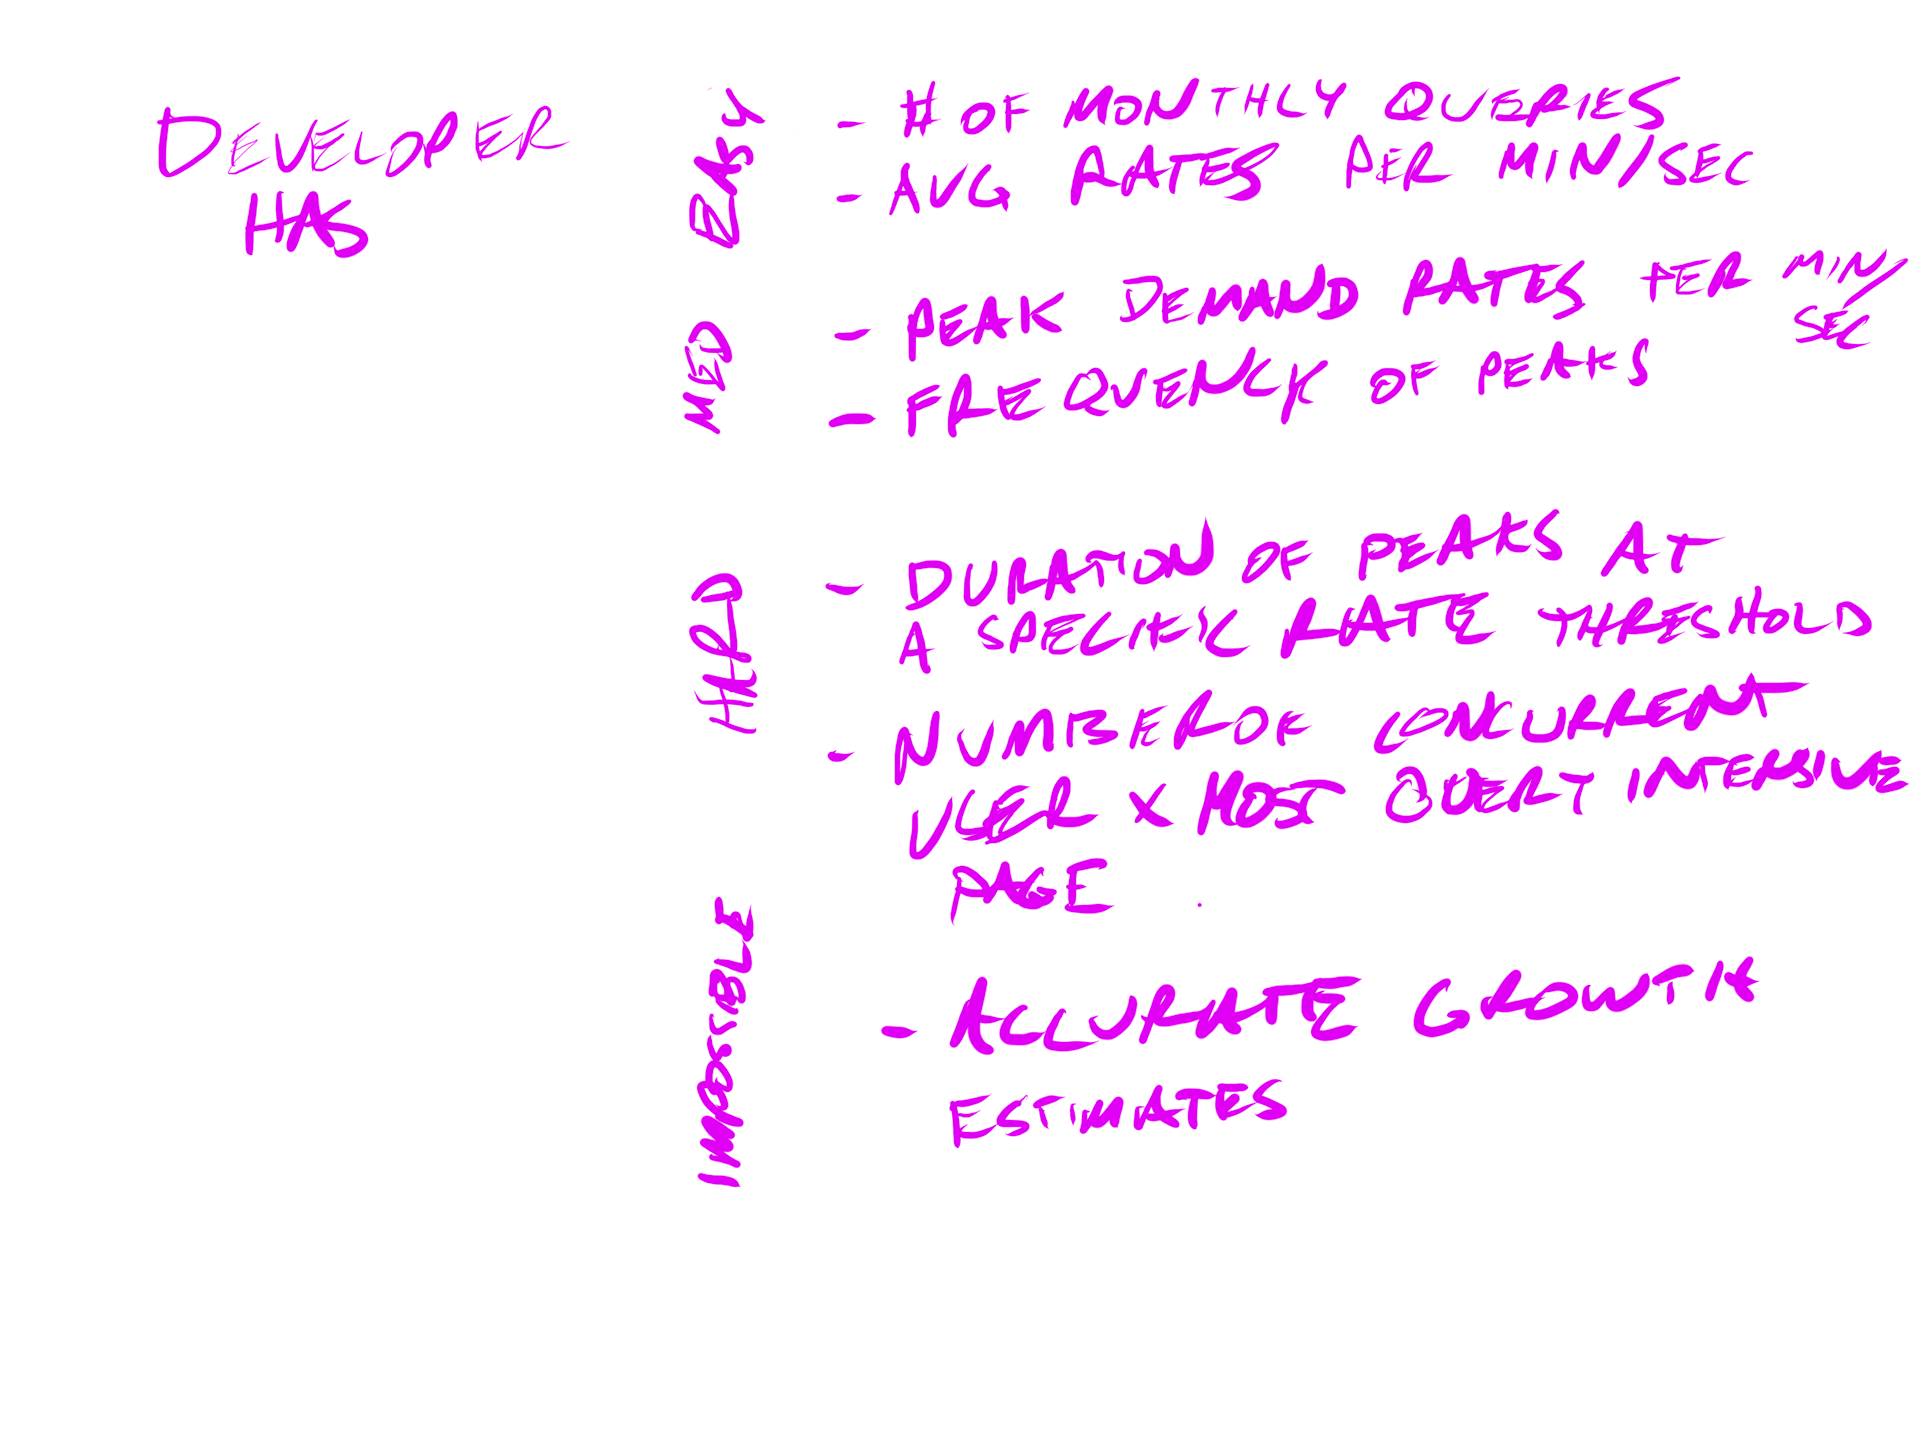 DEVELOPER
HAS
EASY
- # OF MONTHLY QUERIES
- AVG RATES PER MIN/SEC
MED
- PEAK DEMAND RATES PER MIN/
SEC
- FREQUENCY OF PEAKS
HARD
- DURATION OF PEAKS AT
A SPECIFIC RATE THRESHOLD
- NUMBER OF CONCURRENT
USER X MOST QUERY INTENSIVE
PAGE
IMPOSSIBLE
- ACCURATE GROWTH
ESTIMATES